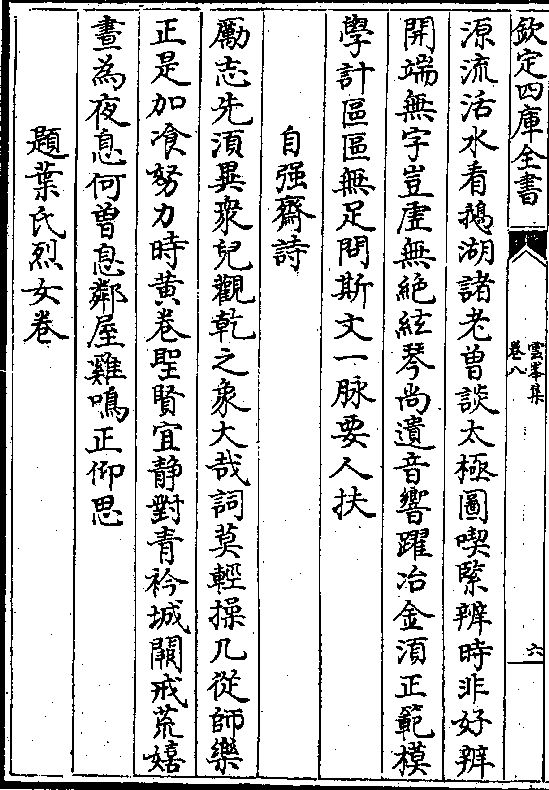 欽定四庫全書
雲峯集
卷八
六
源流活水看鵝湖諸老曽談太極圖喫緊辨時非好辨
開端無字豈虚無絶絃琴尚遺音響躍冶金須正範模
學計區區無足問斯文一脉要人扶
自强齋詩
勵志先須異衆兒觀乾之象大哉詞莫輕操几從師樂
正是加飡努力時黄卷聖賢宜静對青衿城闕戒荒嬉
晝為夜息何曽息鄰屋雞鳴正仰思
題葉氏烈女卷